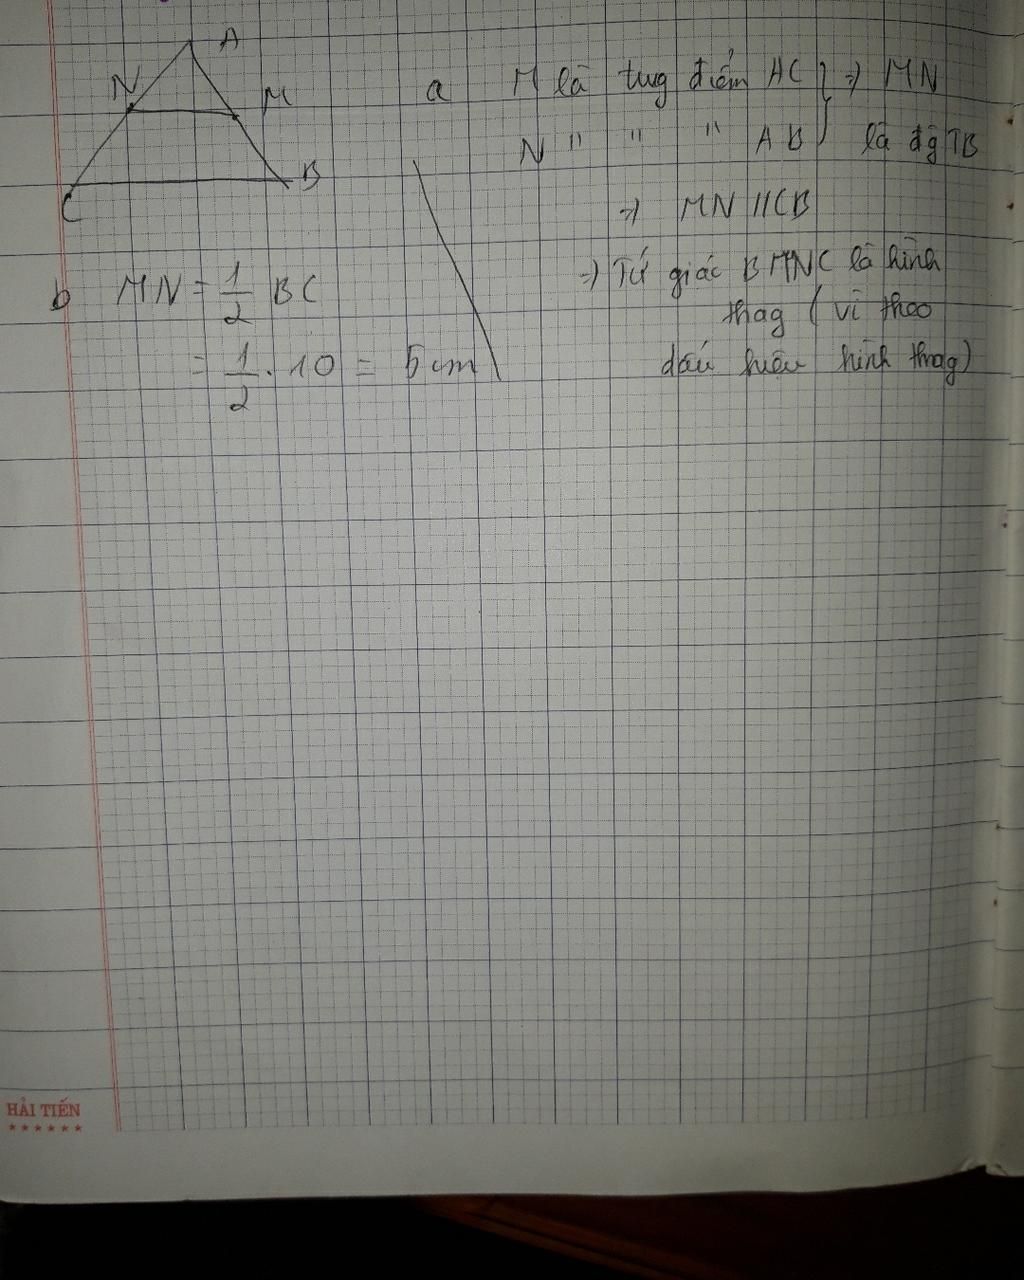 A
N
M
B
C
a M là tug điểm AC } => MN
N " " " AB là đg TB
=> MN // CB
=> Tứ giác BMNC là hình
thag ( vì theo
dấu hiệu hình thag)
b MN = 1/2 BC
= 1/2 . 10 = 5 cm
HẢI TIẾN